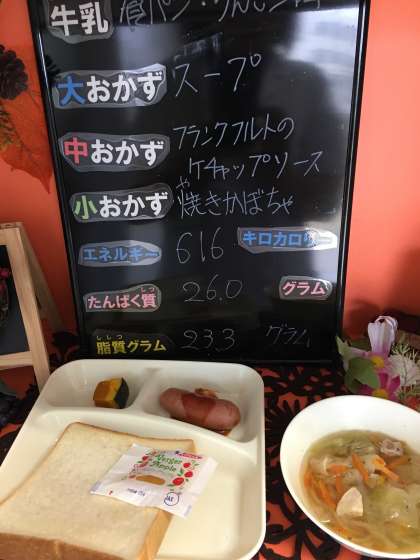 牛乳 食パン・りんごジャム
大おかず スープ
中おかず フランクフルトの
ケチャップソース
小おかず 焼きかぼちゃ
や
エネルギー 616 キロカロリー
たんぱく質 26.0 グラム
しつ
脂質グラム 23.3 グラム
ししつ
Verger
Apple
JAS